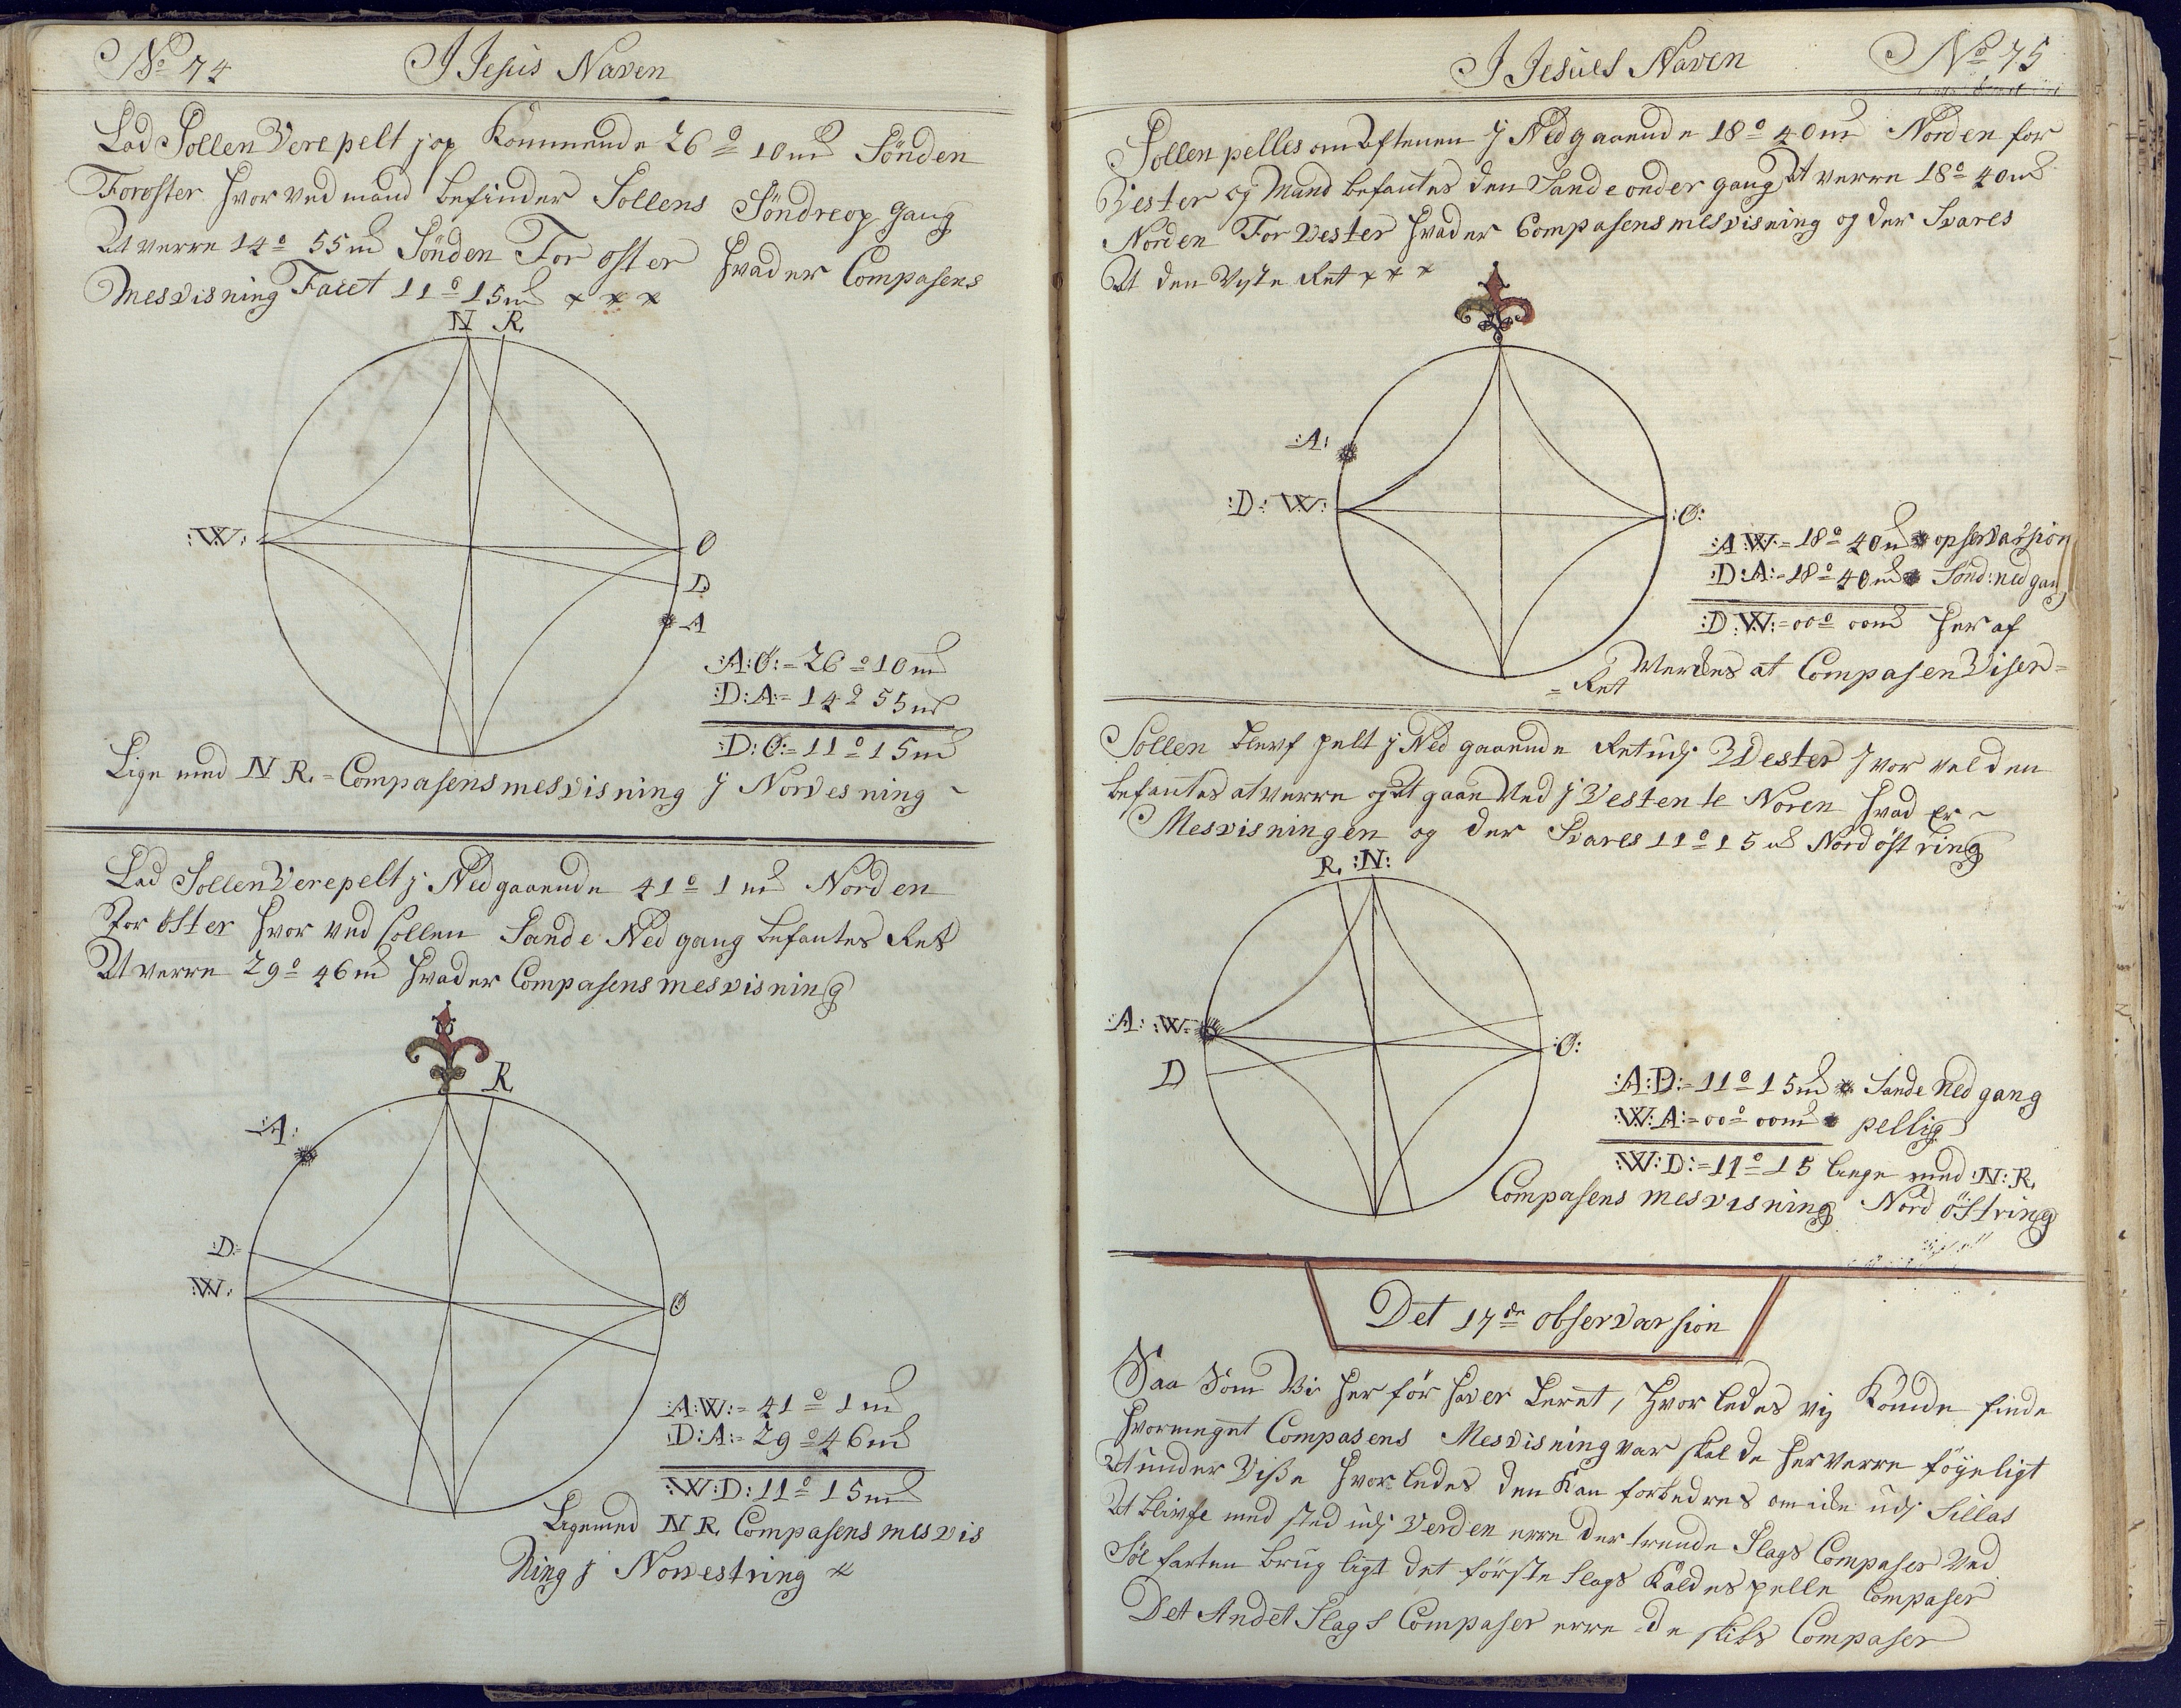 No 74
I Jesus Naven
Lad Sollen Vere pelt j op Kommende 26° 10m Sönden
Foroster hvor ved mand befinder Sollens Söndreop gang
At verre 14° 55m Sönden For oster hvad er Compasens
Mesvisning Facet 11° 15m x x x
N R
:W:
O
D
A
:A:O:=26°10m
:D:A:=14°55m
:D:O:=11°15m
Lige med N R.=Compasens mesvisning j Norvesning ~
Lad Sollen Vere pelt j Nedgaaende 41° 1m Norden
For öster hvor ved sollen Sande Nedgang befantes Ret
At verre 29° 46m hvad er Compasens mesvisning
R
:A:
:D:
:W:
O
:A:W:=41°1m
:D:A:=29°46m
:W:D:11°15m
Ligemed N R. Compasens mesvis
Ning j Norvestring x
I Jesues Naven
No 75
Sollen pelles om Aftenen j Nedgaaende 18° 40m Norden for
Vester og Mand befantes den Sande onder gang At verre 18° 40m
Norden For Vester hvad er Compasens mesvisning og der Svares
At den Vyste Ret x x x
:A:
:D: W:
:O:
:A:W:=18°40m opservassion
:D:A:=18°40m Sond:nedgang
:D:W:=00°00m her af
Merckes at Compasen Viser=
=Ret
Sollen blevf pelt j Ned gaaende Ret udj Wester hvor vel den
befantes at verre og At gaae Ned j Vesten te Noren hvad Er ~
Mesvisningen og der Svares 11°15m Nordöstring
R. :N:
:A: :W:
D
:O:
:A:D:=11°15m Sande nedgang
:W:A:=00°00m pellig
:W:D:=11°15 liige med :N:R.
Compasens mesvisning Nordöstring
Det 17de observarsion
Saa Som Vi her för haver Lernt, hvorledes vij Kònde finde
hvormeget Compasens Mesvisning var skel de her verre föyeligt
At under Viße hvorledes den Kan forbedres om idn udj Sillas
At blivfe med sted udj Verden erre der trende Slags Compaser Ved
Söe farten brug ligt det förste slags Kaldes pelle Compaser
Det Andet Slags Compaser erre de skibs Compaser